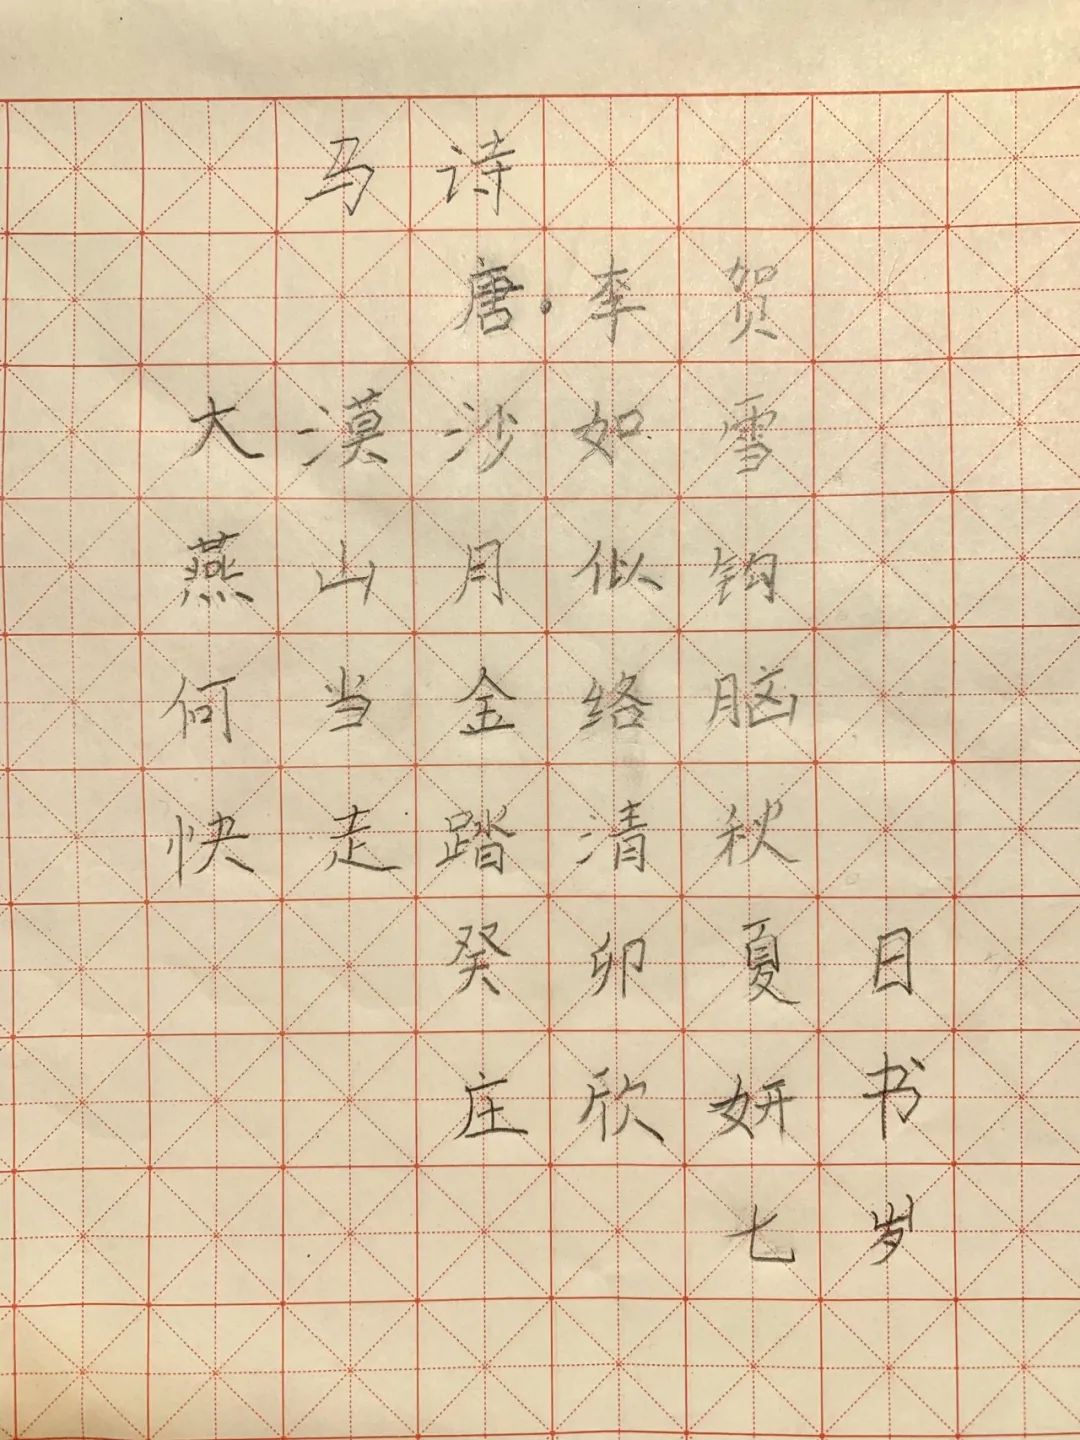 马诗
唐·李贺
大漠沙如雪
燕山月似钩
何当金络脑
快走踏清秋
癸卯夏日
庄欣妍书
七岁